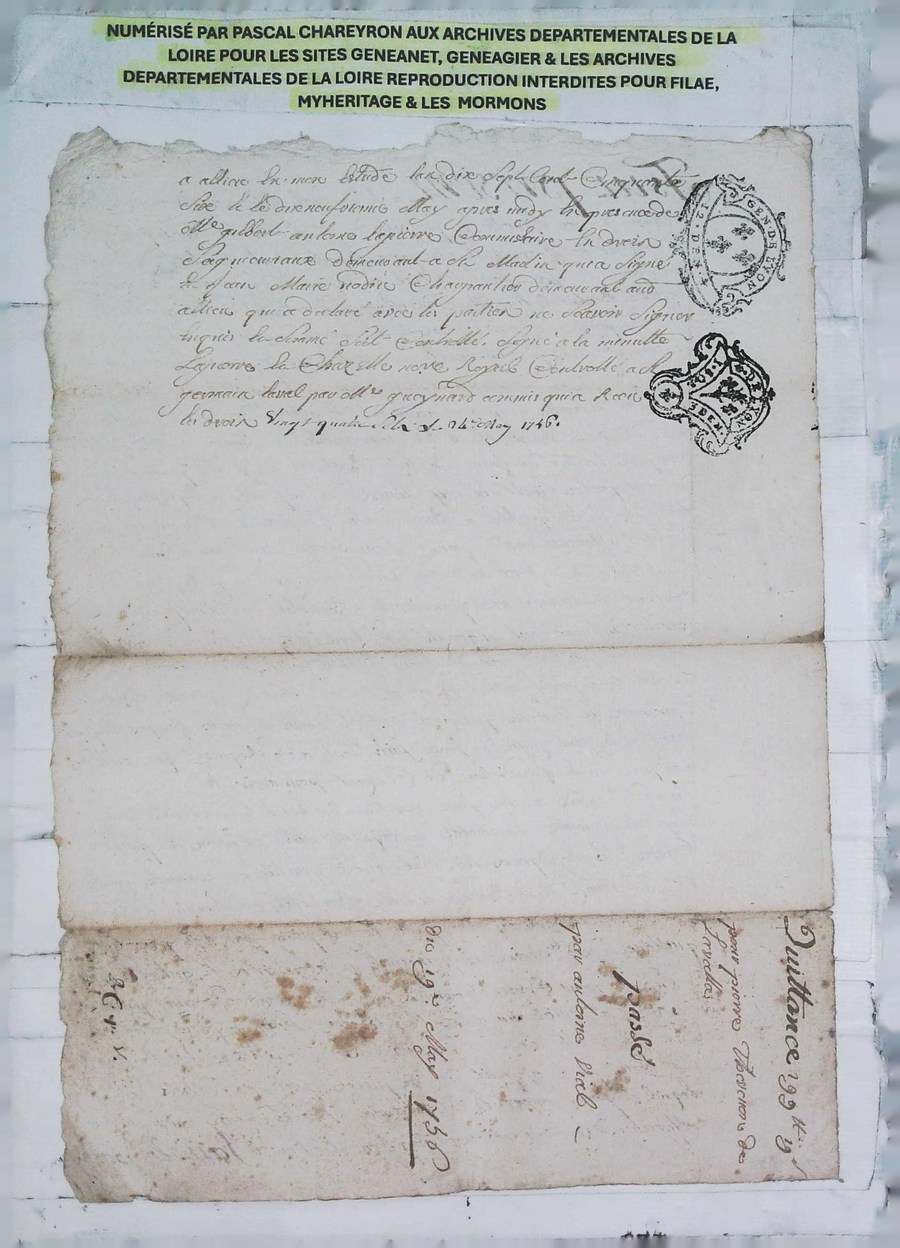 NUMÉRISÉ PAR PASCAL CHAREYRON AUX ARCHIVES DEPARTEMENTALES DE LA
LOIRE POUR LES SITES GENEANET, GENEAGIER & LES ARCHIVES
DEPARTEMENTALES DE LA LOIRE REPRODUCTION INTERDITES POUR FILAE,
MYHERITAGE & LES MORMONS
a allieu En mon Etude Lan dix Sept Cent Cinquante
Six & le dix neufvieme May apres midy En presence de
Mre gilbert antoine lapierre Commissaire En droits
Seigneuriaux demeurant a St Madin qui a Signé
& Jean Marie demeurant aud
allieu qui a declaré avec les parties ne Scavoir Signer
Enquis le Sommé Soit Controllé. Signé a la minutte
Lapierre & Chazelle nore Royal Controllé a St
germain laval par Mre gueynard commis qui a Receu
les droits Vingt quatre le 24e May 1756.
GEN. DE LYON
Quittance 199tt 19s
pour pierre de
passé
par antoine Vial
du 19e May 1756